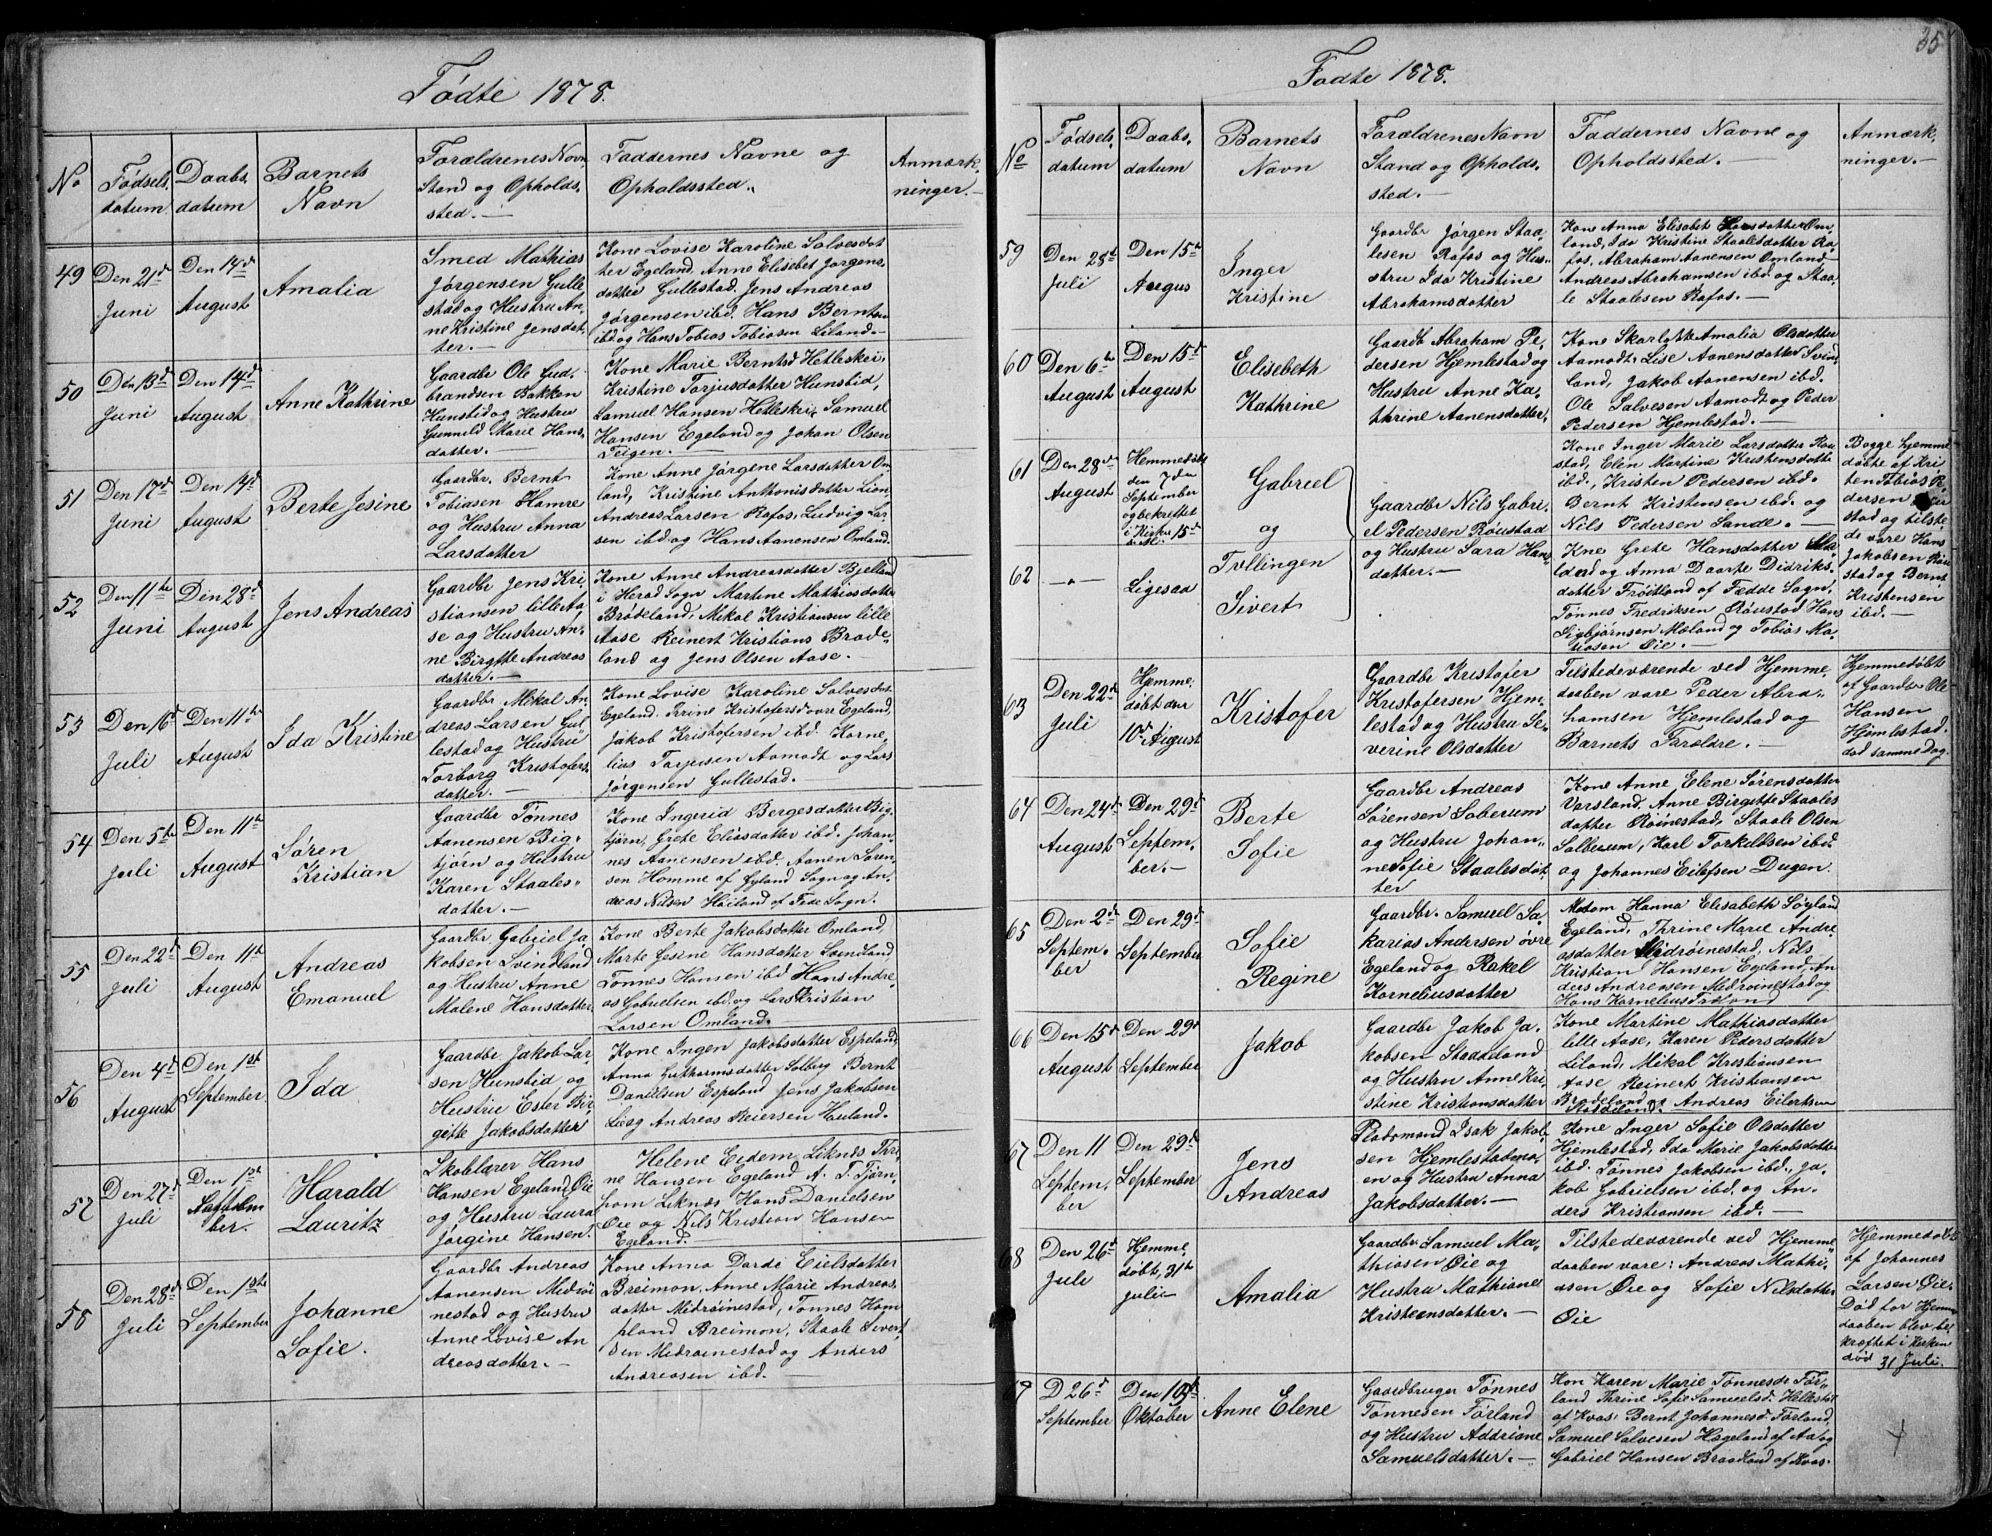 35
Fødte 1878.
No
Fødsels.
datum
Daabs.
datum
Barnets
Navn
Forældrenes Navn
Stand og Opholds.
sted.
Faddernes Navne og
Opholdssted.
Anmærk.
ninger.
49
Den 21de
Juni
Den 14de
August
Amalia
Smed Mathias
Jørgensen Gulle
stad og Hustru An,
ne Kristine Jensdat,
ter.
Kone Lovise Karoline Salvesdot
ter Egeland, Anne Elisabet Jørgens,
datter Gullestad. Jens Andreas
Jørgensen ibd. Hans Berntsen
ibd og Hans Tobias Tobiasen Liland
50
Den 13de
Juni
Den 14de
August
Anne Kathrine
Gaardbr Ole Gud,
brandsen Bakken
Hunstid og Hustru
Gunnild Marie Hans,
datter.
Kone Marie Berntsd Hetleskei,
Kristine Torjusdatter Hunstid,
Samuel Hansen Hetleskei, Samuel
Hansen Egeland og Johan Olsen
Teigen.
51
Den 17de
Juni
Den 14de
August
Berte Jesine
Gaardbr. Bernt
Tobiasen Hamre
og Hustru Anna
Larsdatter
Kone Anne Jørgene Larsdatter Om
land, Kristine Anthonisdatter Lion
Andreas Larsen Rafos, Ludvig Lar
sen ibd. og Hans Aanensen Omland.
52
Den 11te
Juni
Den 28de
August
Jens Andreas
Gaardbr Jens Kri
stiansen lille Aa,
se og Hustru An,
ne Birgitte Andreas
datter.
Kone Anne Andreasdatter Bjelland
i Herad Sogn Martine Mathiasdatter
Brødeland, Mikal Kristiansen lille
Aase Reinert Kristians Brade,
land og Jens Olsen Aase.
53
Den 16de
Juli
Den 11te
August
Ida Kristine
Gaardbr Mekal An,
dreas Larsen Gul,
lestad og Hustru
Torborg Kristofers,
datter.
Kone Lovise Karoline Salvesdat
Egeland. Trine Kristofersd øvre Egeland,
Jakob Kristofersen ibd. Korne,
lius Torjusen Aamodt og Lars
Jørgensen Gullestad.
54
Den 5te
Juli
Den 11te
August
Søren
Kristian
Gaardbr Tønnes
Aanensen Big,
tjørn og Hustru
Karen Staales,
datter.
Kone Ingerid Bergesdatter Big
tjørn, Grete Eliasdatter ibd. Johan,
nes Aanensen ibd. Aanen Søren,
sen Homme af Gyland Sogn og An,
dreas Nilsen Høiland af Fede Sogn.
55
Den 22de
Juli
Den 11te
August
Andreas
Emanuel
Gaardbr Gabriel Ja
kobsen Svindland
og Hustru Anne
Malene Hansdatter.
Kone Berte Jakobsdatter Omland,
Marte Jesine Hansdatter Svenland
Tønnes Hansen ibd Hans Andre,
as Gabrielsen ibd. og Lars Kristian
Larsen Omland.
56
Den 4de
August
Den 1st
September
Ida
Gaardbr Jakob Lar,
sen Hunstid og
Hustru Ester Bir,
gitte Jakobsdatter
Kone Ingen Jakobsdatter Espeland,
Anna Guthormsdatter Solberg Bernt
Danielsen Espeland Jens Jakobsen
Log Andreas Reiersen Hauland.
57
Den 27de
Juli
Den 1st
September.
Harald
Lauritz
Skolelærer Hans
Hansen Egeland, Øie
og Hustru Laura
Jørgine Hansen.
Helene Eedem, Liknes Thri
ne Hansen Egeland A. T. Tjørn,
hom Liknes Hans Danielsen
Øie og Nils Kristian Hansen
Egeland.
58
Den 28de
Juli
Den 1ste
September
Johanne
Sofie.
Gaardbr Andreas
Aanensen Midrøi
nestad og Hustru
Anne Lovise An
dreasdatter.
Kone Anna Dorde Eielsdatter
Breimon, Anne Marie Andreas,
datter Midrøinestad, Tønnes Hom
pland Breimon, Staale Sivert
sen Midrøinestad og Anders
Andreasen ibd.
Fødte 1878.
No
Fødsels,
datum
Daabs.
datum
Barnets
Navn
Forældrenes Navn
Stand og Opholds,
sted.
Faddernes Navne og
Opholdssted.
Anmærk,
ninger.
59
Den 28de
Juli
Den 15de
Augus
Inger
Kristine
Gaardbr Jørgen Staa,
lesen Rafos og Hu,
stru Ida Kristine
Abrahamsdatter
Kone Anna Elisabet Larsdatter Om
land, Ida Kristine Staalesdatter Ra
fos, Abraham Aanensen Omland
Andreas Abrahamsen ibd og Staa,
le Staalesen Rafos.
60
Den 6te
August
Den 15de
August
Elisebeth
Kathrine
Gaardbr Abraham Pe,
dersen Hjemlestad og
Hustru Anne Ka,
thrine Aanensdatter.
Kone Skarlotte Amalia Olsdatter
Aamodt, Lise Aanensdatter Svind
land, Jakob Aanensen ibd.
Ole Salvesen Aamodt og Peder
Pedersen Hjemlestad.
61
Den 28de
August
Hemmedøbt
den 7de
September
og bekræftet
i Kirken 15de
Gabriel
og
Gaardbr Nils Gabri,
el Pedersen Røustad
og Hustru Sara Han,
datter.
Kone Inger Marie Larsdatter Rou
stad, Elen Martine Kristensdatte
ibd., Kristen Pedersen ibd.
Bernt Kristensen ibd. og
Nils Pedersen Sande.
Begge hjemme
døbte af Kri
sten Tobias Pe
dersen Røu
stad og tilste
de vare Hans
Jakobsen Røu
stad og Bernt
Kristensen
ibd.
62
Ligesaa
Tvllingen
Sivert
Kne Grete Hansdatter
og Anna Daarte Didriks,
datter Frøitland af Fedde Sogn,
Tønnes Fredriksen Røustad, Hans
Sigbjørnsen Moland og Tobias Ma
tiasen Øie.
63
Den 22de
Juli
Hjemme,
døbt den
10de August
Kristofer
Gaardbr Kristofer
Kristofersen Hjem,
lestad og Hustru Se,
verine Olsdatter
Tilstedeværende ved Hjemme,
daaben vare Peder Abra,
hamsen Hjemlestad og
Barnets Forældre.
Hjemmedøbt
af Gaardbr Ole
Hansen
Hjemlestad.
død samme Dag.
64
Den 24de
August
Den 29de
Septem,
ber.
Berte
Sofie
Gaardbr Andreas
Sørensen Solerum
og Hustru Johan,
ne Sofie Staalesdat,
ter
Kone Anne Elene Sørensdatter
Versland, Anne Birgitte Staales
datter Røinestad, Staale Olsen
Sollerum, Karl Torkildsen ibd.
og Johannes Eilefsen Dugen.
65
Den 2de
Septem,
ber
Den 29de
September
Sofie
Regine
Gaardbr. Samuel Sa,
karias Andersen øvre
Egeland og Rakel
Korneliusdatter
Madam Hanna Elisabeth Søyland
Egeland, Thrine Marie Andre,
asdatter Midrøinestad, Nils
Kristian Hansen Egeland, An
ders Andreasen Midrøinestad og
Hans Kornelius
66
Den 15de
August
Den 29de
September
Jakob
Gaardbr Jakob Ja,
kobsen Stadeland
og Hustru Anne Kri,
stine Kristiansdatter
Kone Martine Mathiasdatter
lille Aase, Karen Pedersdatter
Liland, Mikal Kristiansen
Aase Reinert Kristiansen
Brødeland og Andreas Eilertsen
Stadeland.
67
Den 11
Septem,
ber
Den 29de
September
Jens
Andreas
Pladsmand Isak Jakob,
sen Hjemlestadmo,
en og Hustru Anna
Jakobsdatter.
Kone Inger Sofie Olsdatter
Hjemlestad, Ida Marie Jakobsdatter
ibd. Tønnes Jakobsen ibd. Ja,
kob Gabrielsen ibd. og An,
ders Kristiansen ibd.
68
Den 26de
Juli
Hjemme,
døbt 31te
Juli
Amalia
Gaardbr Samuel Ma,
thiasen Øie og
Hustru Mathiane
Kristensdatter.
Tilstedeværende ved Hjemme
daaben vare: Andreas Mathi,
asen Øie og Sofie Nilsdatter
Øie
Hjemmedøbt
af Johannes
Larsen Øie.
Død før Hjemme
daaben blev be,
kræftet i Kirken
død 31 Juli.
69
D 26de
September
Den 10de
Oktober
Anne Elene
Gaardbruger Tønnes
Tønnesen Førland
og Hustru Addriane
Samuelsdatter.
Kon Karen Marie Tønnesdr Før,
land, Thrine Sofie Samuelsd. Hellestol
af Kvas, Bernt Johannesd. Førland,
Samuel Salvesen Hægeland af Aa og
Gabriel Hansen Braadland af Kvas.